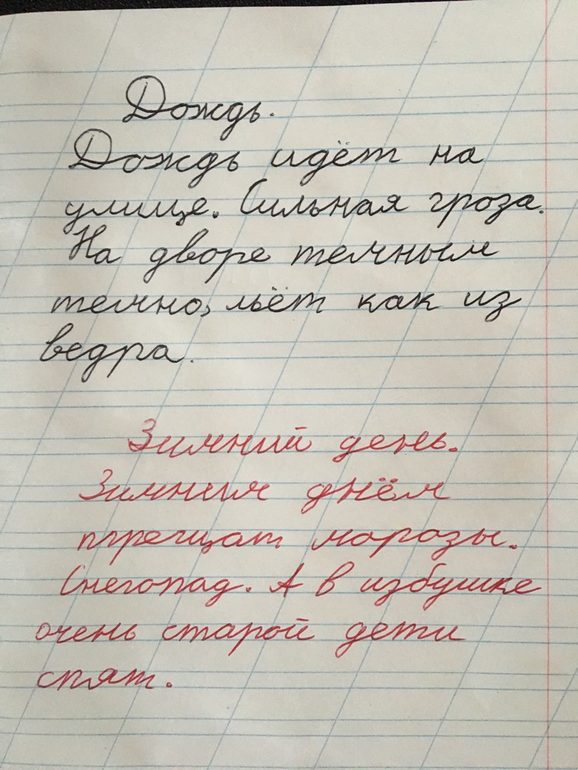 Дождь.
Дождь идёт на
улице. Сильная гроза.
На дворе темным
темно, льёт как из
ведра.
Зимний день.
Зимним днём
трещат морозы.
Снегопад. А в избушке
очень старой дети
спят.